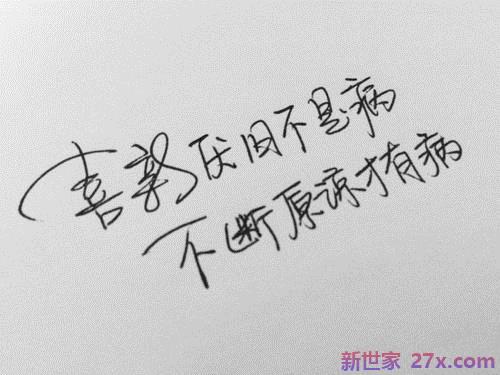 喜新厌旧不是病
不断原谅才有病
新世家 27x.com